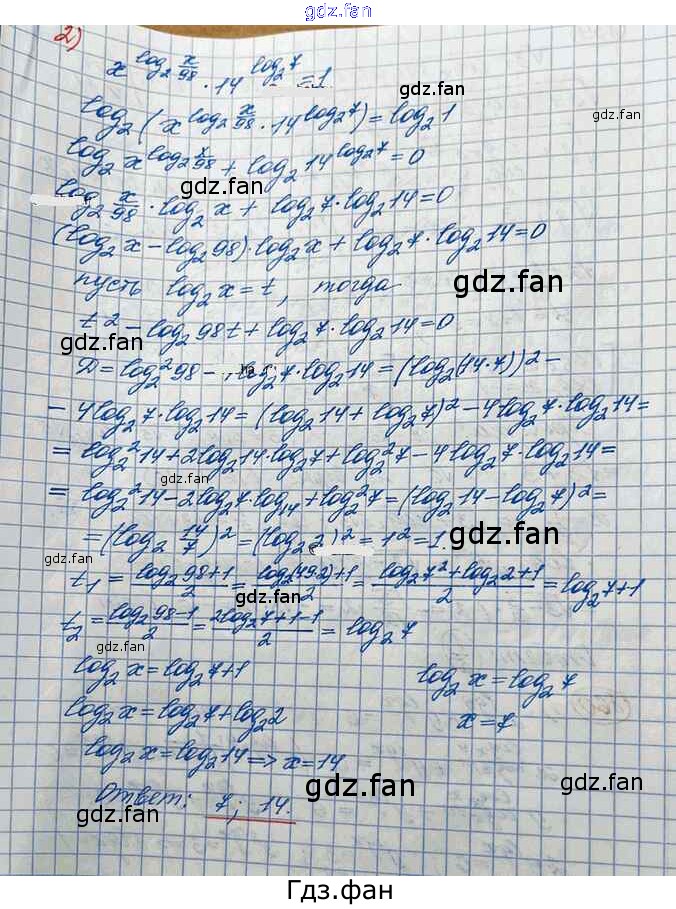 gdz.fan
2)
x^(log₂ x/98) · 14^(log₂7) = 1
gdz.fan
log₂(x^(log₂ x/98) · 14^(log₂7)) = log₂1
log₂ x^(log₂ x/98) + log₂ 14^(log₂7) = 0
gdz.fan
log₂ x/98 · log₂ x + log₂7 · log₂14 = 0
(log₂x - log₂98) · log₂x + log₂7 · log₂14 = 0
gdz.fan
пусть log₂x = t, тогда
t² - log₂98t + log₂7 · log₂14 = 0
gdz.fan gdz.fan
D = log₂²98 - log₂7 · log₂14 = (log₂(14·7))² -
- 4log₂7 · log₂14 = (log₂14 + log₂7)² - 4log₂7 · log₂14 =
= log₂²14 + 2log₂14 · log₂7 + log₂²7 - 4log₂7 · log₂14 =
gdz.fan
= log₂²14 - 2log₂7 · log₁₄ + log₂²7 = (log₂14 - log₂7)² =
gdz.fan
= (log₂ 14/7)² = (log₂2)² = 1² = 1.
gdz.fan gdz.fan
t₁ = (log₂98+1)/2 = (log₂(49·2)+1)/2 = (log₂7²+log₂2+1)/2 = log₂7+1
t₂ = (log₂98-1)/2 = (2log₂7+1-1)/2 = log₂7
gdz.fan
log₂x = log₂7+1
log₂x = log₂7
log₂x = log₂7 + log₂2
x = 7
gdz.fan
log₂x = log₂14 => x = 14
gdz.fan gdz.fan
Ответ: 7; 14.
gdz.fan
Гдз.фан